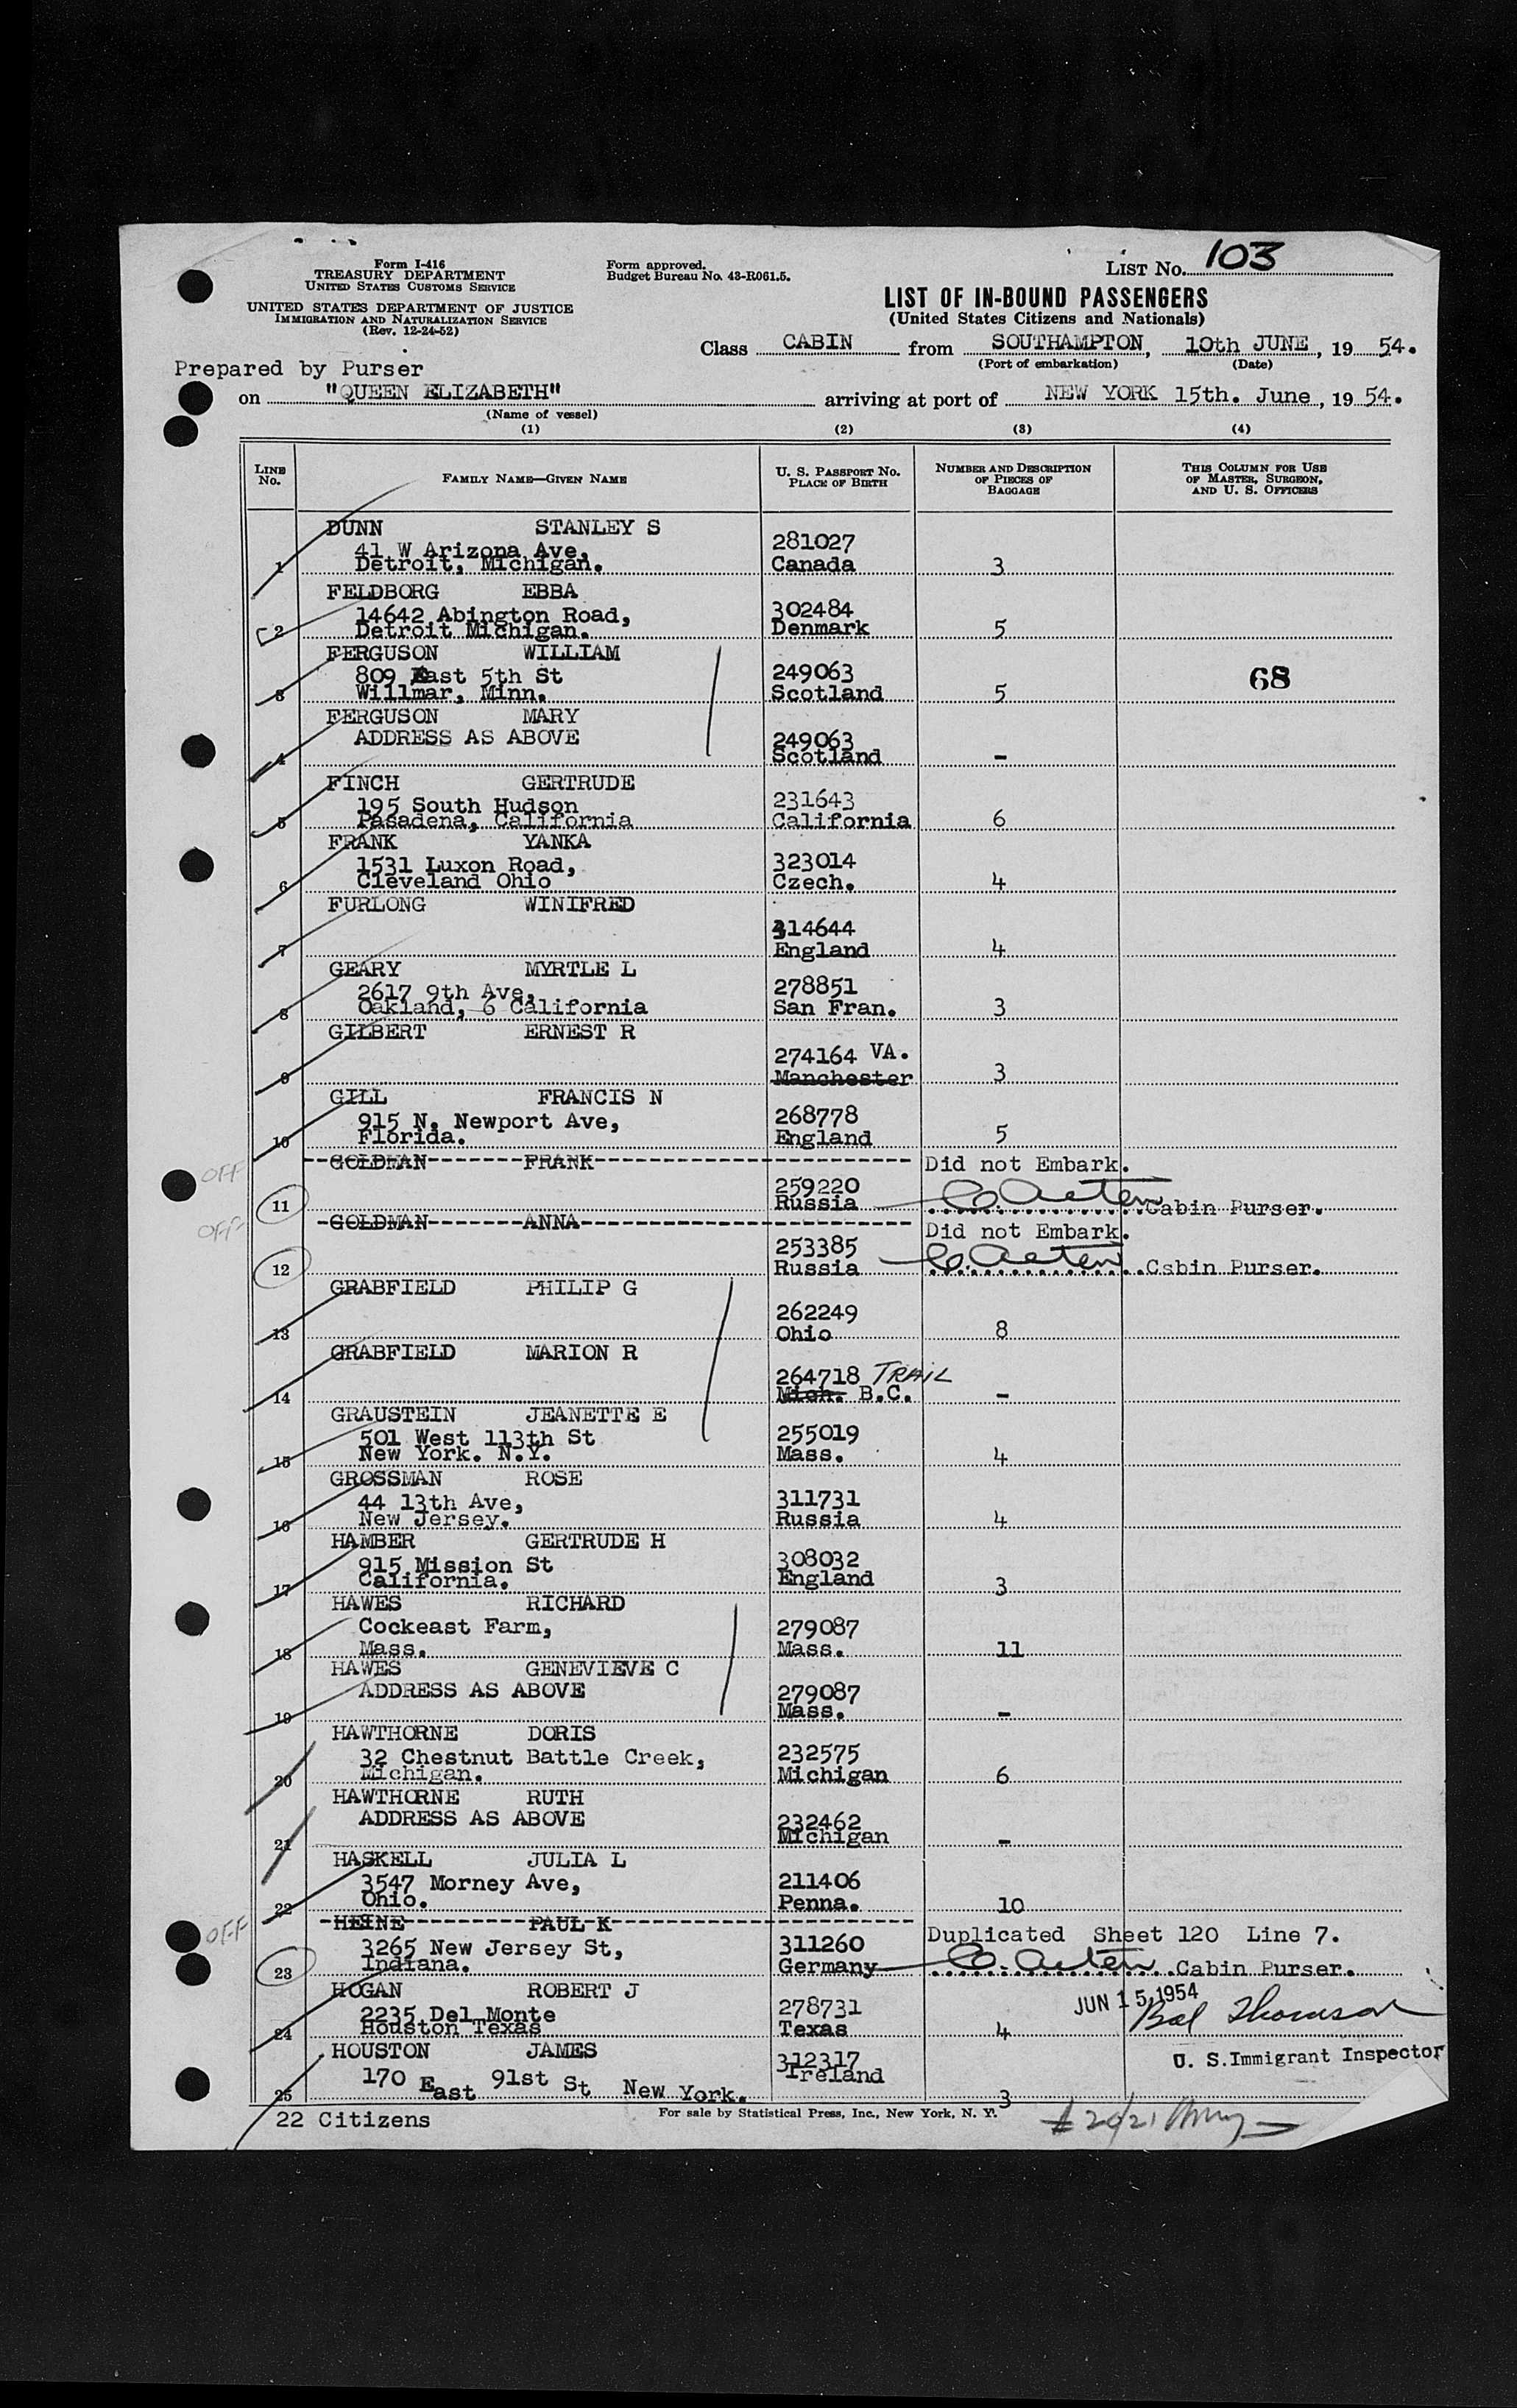 Form I-416
TREASURY DEPARTMENT
UNITED STATES CUSTOMS SERVICE
UNITED STATES DEPARTMENT OF JUSTICE
IMMIGRATION AND NATURALIZATION SERVICE
(Rev. 12-24-52)
Form approved.
Budget Bureau No. 43-R061.5.
LIST No. 103
LIST OF IN-BOUND PASSENGERS
(United States Citizens and Nationals)
Class CABIN from SOUTHAMPTON, 10th JUNE, 19 54.
(Port of embarkation) (Date)
Prepared by Purser
on "QUEEN ELIZABETH" arriving at port of NEW YORK 15th. June, 19 54.
(Name of vessel)
(1) (2) (3) (4)
LINE No. FAMILY NAME—GIVEN NAME U. S. PASSPORT No. PLACE OF BIRTH NUMBER AND DESCRIPTION OF PIECES OF BAGGAGE THIS COLUMN FOR USE OF MASTER, SURGEON, AND U. S. OFFICERS
DUNN STANLEY S
41 W Arizona Ave, 281027
1 Detroit, Michigan. Canada 3
FELDBORG EBBA
14642 Abington Road, 302484
2 Detroit Michigan. Denmark 5
FERGUSON WILLIAM
809 East 5th St 249063 68
3 Willmar, Minn. Scotland 5
FERGUSON MARY
ADDRESS AS ABOVE 249063
4 Scotland -
FINCH GERTRUDE
195 South Hudson 231643
5 Pasadena, California California 6
FRANK YANKA
1531 Luxon Road, 323014
6 Cleveland Ohio Czech. 4
FURLONG WINIFRED
314644
7 England 4
GEARY MYRTLE L
2617 9th Ave, 278851
8 Oakland, 6 California San Fran. 3
GILBERT ERNEST R
274164 VA.
9 Manchester 3
GILL FRANCIS N
915 N. Newport Ave, 268778
10 Florida. England 5
OFF GOLDMAN FRANK Did not Embark.
259220
11 Russia Cabin Purser.
OFF GOLDMAN ANNA Did not Embark.
253385
12 Russia Csbin Purser.
GRABFIELD PHILIP G
262249
13 Ohio 8
GRABFIELD MARION R
264718 TRAIL
14 Mich. B.C. -
GRAUSTEIN JEANETTE E
501 West 113th St 255019
15 New York. N.Y. Mass. 4
GROSSMAN ROSE
44 13th Ave, 311731
16 New Jersey. Russia 4
HAMBER GERTRUDE H
915 Mission St 308032
17 California. England 3
HAWES RICHARD
Cockeast Farm, 279087
18 Mass. Mass. 11
HAWES GENEVIEVE C
ADDRESS AS ABOVE 279087
19 Mass. -
HAWTHORNE DORIS
32 Chestnut Battle Creek, 232575
20 Michigan. Michigan 6
HAWTHORNE RUTH
ADDRESS AS ABOVE 232462
21 Michigan -
HASKELL JULIA L
3547 Morney Ave, 211406
22 Ohio. Penna. 10
OFF HEINE PAUL K Duplicated Sheet 120 Line 7.
3265 New Jersey St, 311260
23 Indiana. Germany Cabin Purser.
HOGAN ROBERT J JUN 15 1954
2235 Del Monte 278731
24 Houston Texas Texas 4
HOUSTON JAMES 312317 U. S. Immigrant Inspector
170 East 91st St New York. Ireland
25 3
22 Citizens For sale by Statistical Press, Inc., New York, N. Y.